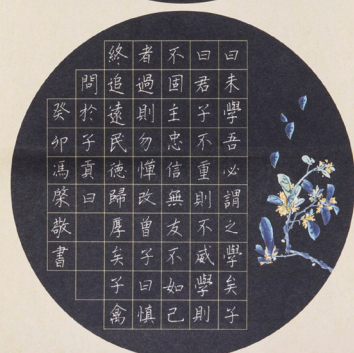 曰未學吾必謂之學矣子
曰君子不重則不威學則
不固主忠信無友不如己
者過則勿憚改曾子曰慎
終追遠民德歸厚矣子禽
問於子貢曰
癸卯馮榮敬書